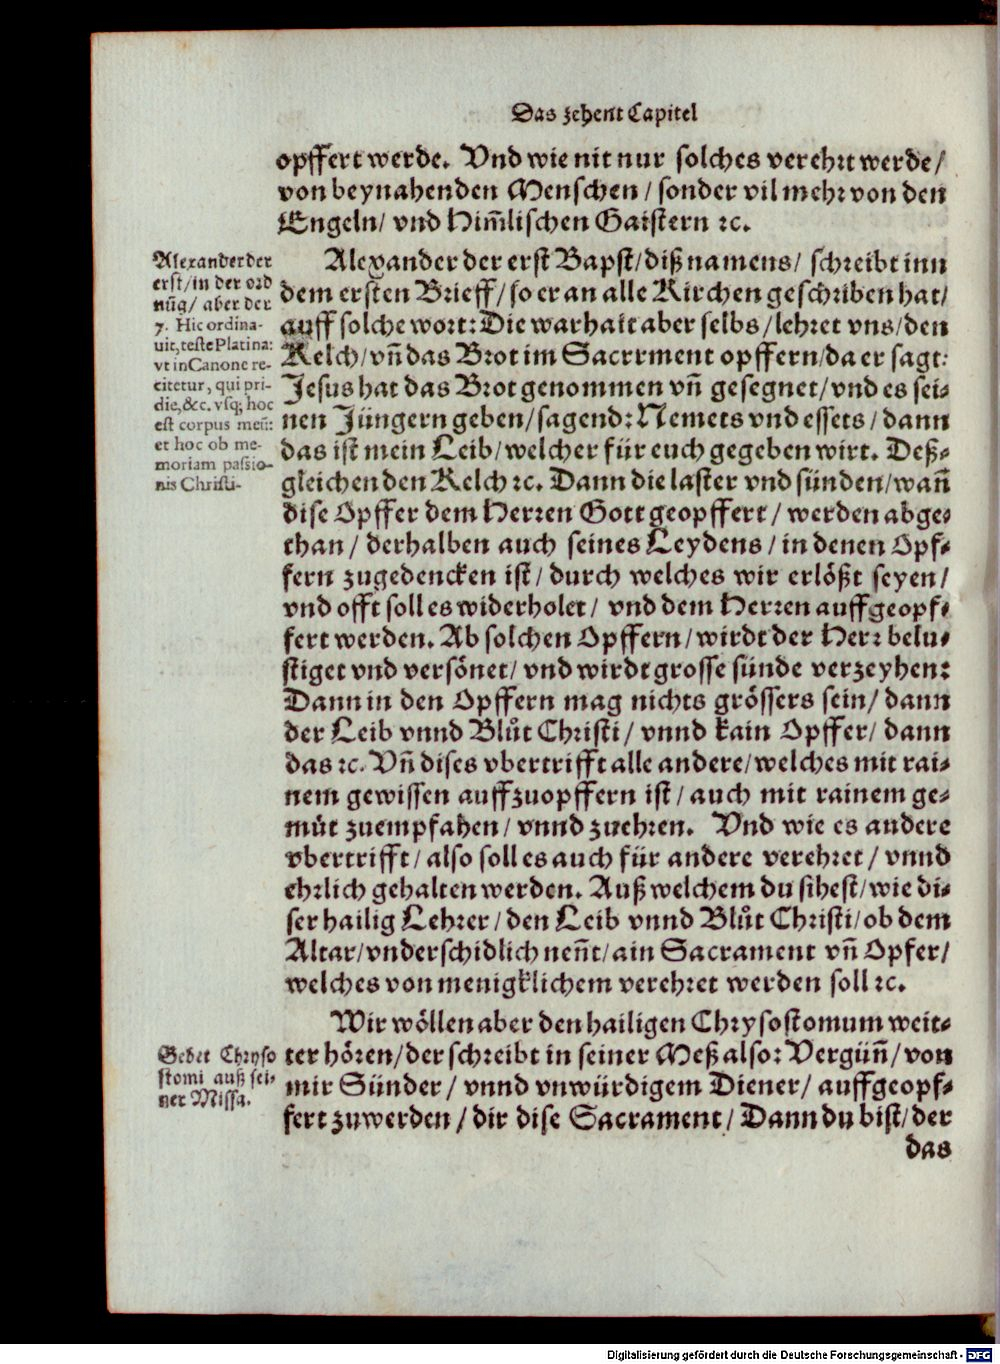 Das zehent Capitel
opffert werde. Vnd wie nit nur solches verehrt werde/
von beynahenden Menschen / sonder vil mehr von den
Engeln/ vnd Him̃lischen Gaistern ꝛc.
Alexander der
erst/in der ord
nũg/ aber der
7. Hic ordina-
uit, teste Platina:
vt in Canone re-
citetur, qui pri-
die, &c. vsq; hoc
est corpus meũ:
et hoc ob me-
moriam passio-
nis Christi.
Alexander der erst Bapst/diß namens/ schreibt inn
dem ersten Brieff/ so er an alle Kirchen geschriben hat/
auff solche wort: Die warhait aber selbs/lehret vns/den
Kelch/vñ das Brot im Sacrrment opffern/da er sagt:
Jesus hat das Brot genommen vñ gesegnet/vnd es sei-
nen Jüngern geben/sagend: Nemets vnd essets / dann
das ist mein Leib/welcher für euch gegeben wirt. Deß-
gleichen den Kelch ꝛc. Dann die laster vnd sünden/wañ
dise Opffer dem Herren Gott geopffert / werden abge-
than / derhalben auch seines Leydens / in denen Opf-
fern zugedencken ist / durch welches wir erlößt seyen/
vnd offt soll es widerholet / vnd dem Herren auffgeopf-
fert werden. Ab solchen Opffern/wirdt der Herr belu-
stiget vnd versönet/ vnd wirdt grosse sünde verzeyhen:
Dann in den Opffern mag nichts grössers sein/ dann
der Leib vnnd Blůt Christi / vnnd kain Opffer/ dann
das ꝛc. Vñ dises vbertrifft alle andere/welches mit rai-
nem gewissen auffzuopffern ist / auch mit rainem ge-
můt zuempfahen/ vnnd zuehren. Vnd wie es andere
vbertrifft/ also soll es auch für andere verehret / vnnd
ehrlich gehalten werden. Auß welchem du sihest/wie di-
ser hailig Lehrer / den Leib vnnd Blůt Christi/ob dem
Altar/vnderschidlich neñt/ain Sacrament vñ Opfer/
welches von menigklichem verehret werden soll ꝛc.
Wir wöllen aber den hailigen Chrysostomum weit-
Gebet Chryso
stomi auß sei-
ner Missa.
ter hören/der schreibt in seiner Meß also: Vergüñ/von
mir Sünder / vnnd vnwürdigem Diener/ auffgeopf-
fert zuwerden / dir dise Sacrament/ Dann du bist/der
das
Digitalisierung gefördert durch die Deutsche Forschungsgemeinschaft - DFG